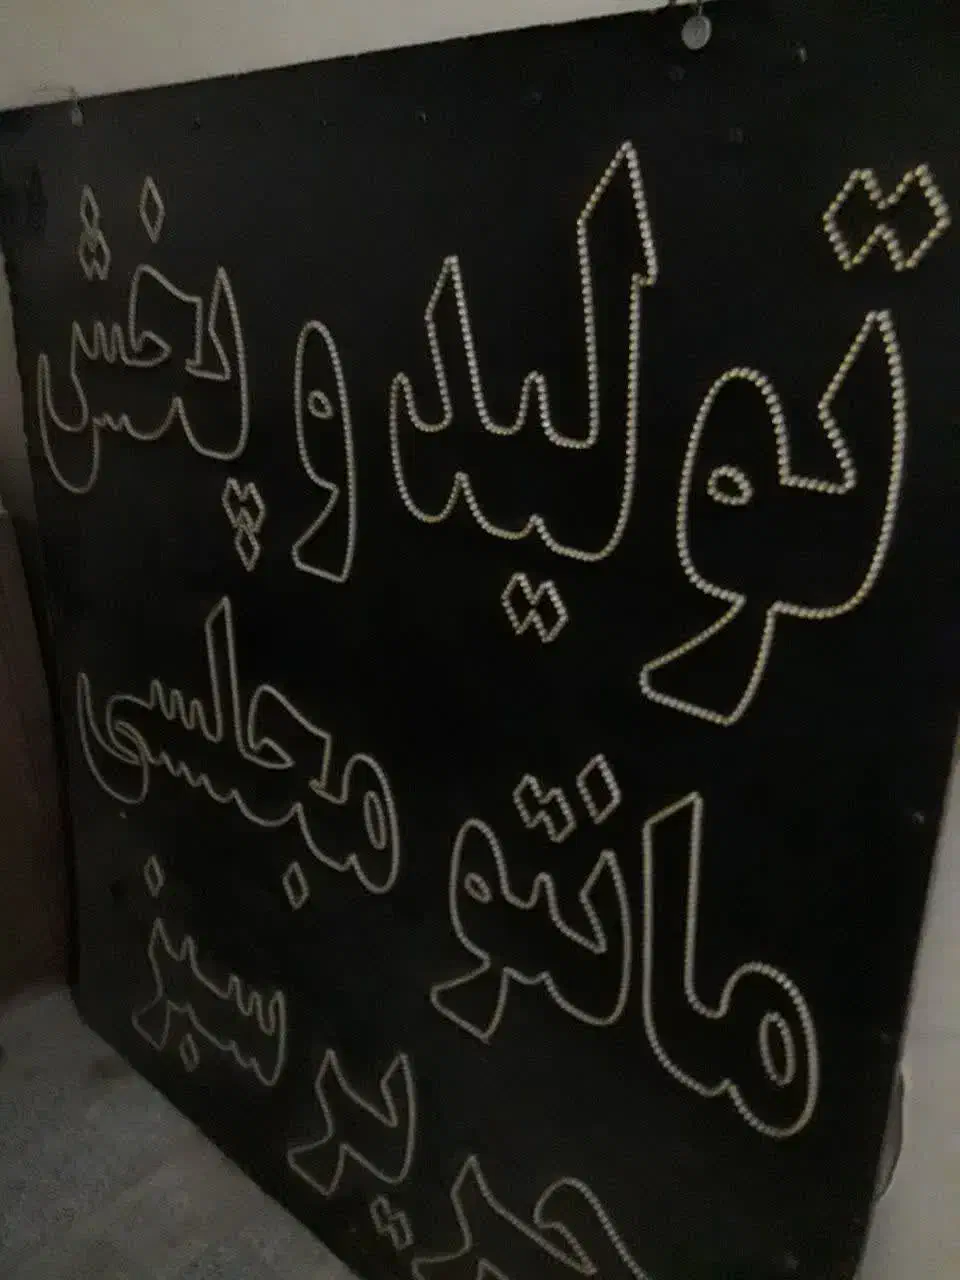 تولید و پخش
مانتو مجلسی
حریر سبز